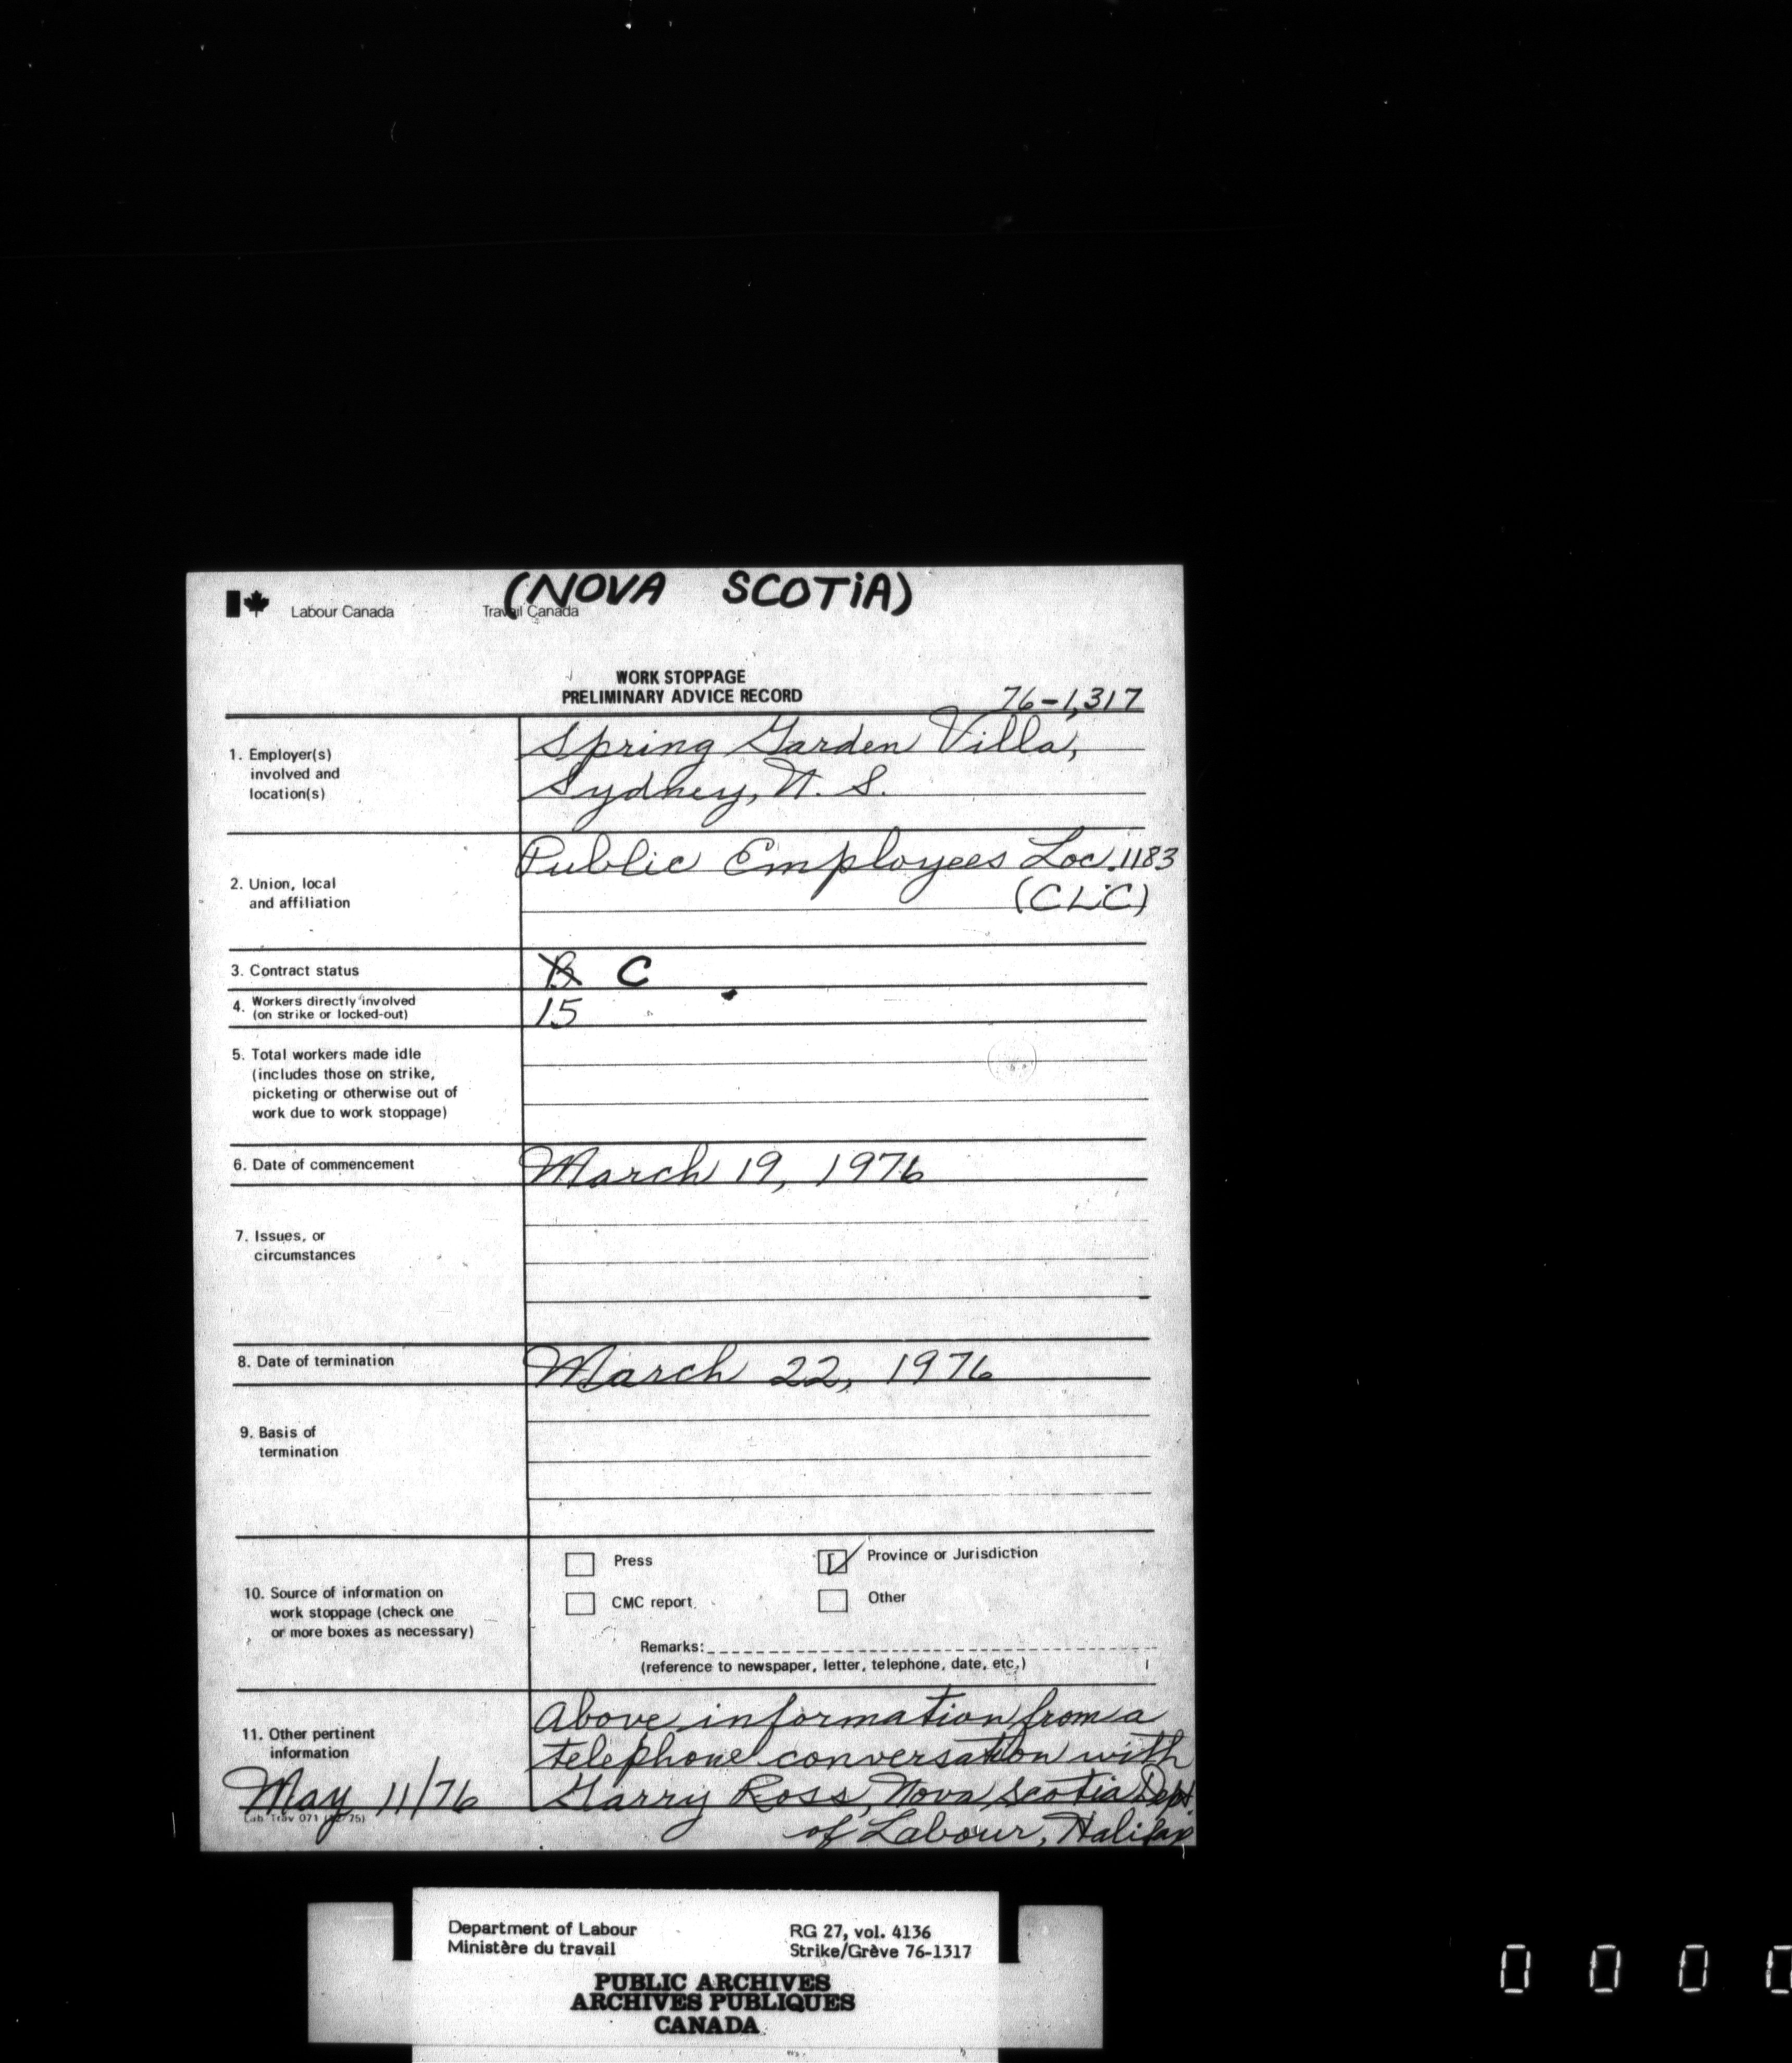 (NOVA SCOTIA)
Labour Canada Travail Canada
WORK STOPPAGE
PRELIMINARY ADVICE RECORD
76-1,317
1. Employer(s)
involved and
location(s)
Spring Garden Villa,
Sydney, N. S.
2. Union, local
and affiliation
Public Employees Loc. 1183
(CLC)
3. Contract status
B C
4. Workers directly involved
(on strike or locked-out)
15
5. Total workers made idle
(includes those on strike,
picketing or otherwise out of
work due to work stoppage)
6. Date of commencement
March 19, 1976
7. Issues, or
circumstances
8. Date of termination
March 22, 1976
9. Basis of
termination
10. Source of information on
work stoppage (check one
or more boxes as necessary)
Press
Province or Jurisdiction
CMC report
Other
Remarks:
(reference to newspaper, letter, telephone, date, etc.)
11. Other pertinent
information
Above information from a
telephone conversation with
Garry Ross, Nova Scotia Dept
of Labour, Halifax
May 11/76
Lab Trav 071
Department of Labour
Ministère du travail
RG 27, vol. 4136
Strike/Grève 76-1317
PUBLIC ARCHIVES
ARCHIVES PUBLIQUES
CANADA
0 0 0